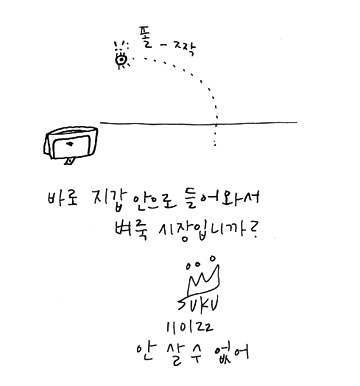 폴 - 짝
바로 지갑 안으로 들어와서
벼룩 시장입니까?
SUKU
110122
안 살 수 없어